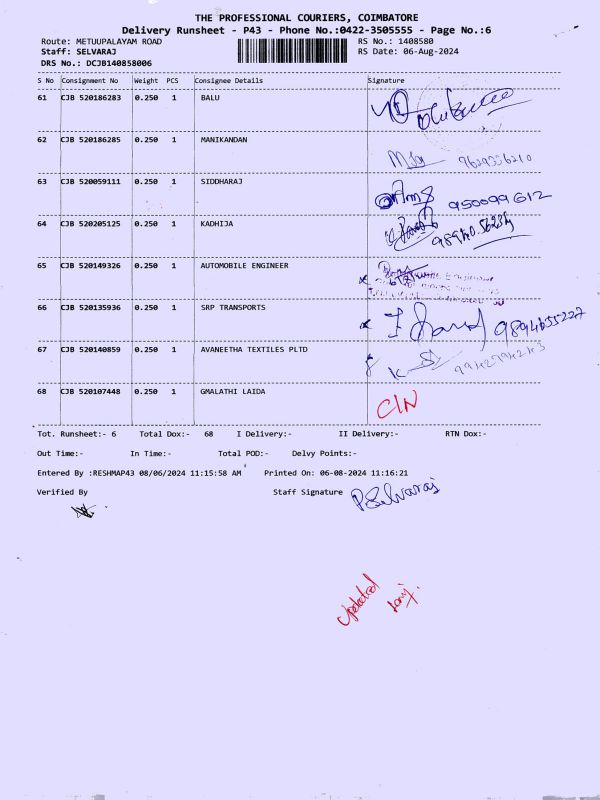 THE PROFESSIONAL COURIERS, COIMBATORE
Delivery Runsheet - P43 - Phone No.:0422-3505555 - Page No.:6
Route: METUUPALAYAM ROAD RS No.: 1408580
Staff: SELVARAJ RS Date: 06-Aug-2024
DRS No.: DCJB140858006
S No Consignment No Weight PCS Consignee Details Signature
61 CJB 520186283 0.250 1 BALU
62 CJB 520186285 0.250 1 MANIKANDAN
63 CJB 520059111 0.250 1 SIDDHARAJ 950099612
64 CJB 520205125 0.250 1 KADHIJA
65 CJB 520149326 0.250 1 AUTOMOBILE ENGINEER
66 CJB 520135936 0.250 1 SRP TRANSPORTS
67 CJB 520140859 0.250 1 AVANEETHA TEXTILES PLTD
68 CJB 520107448 0.250 1 GMALATHI LAIDA C/N
Tot. Runsheet:- 6 Total Dox:- 68 I Delivery:- II Delivery:- RTN Dox:-
Out Time:- In Time:- Total POD:- Delvy Points:-
Entered By :RESHMAP43 08/06/2024 11:15:58 AM Printed On: 06-08-2024 11:16:21
Verified By Staff Signature P.Selvaraj
Updated